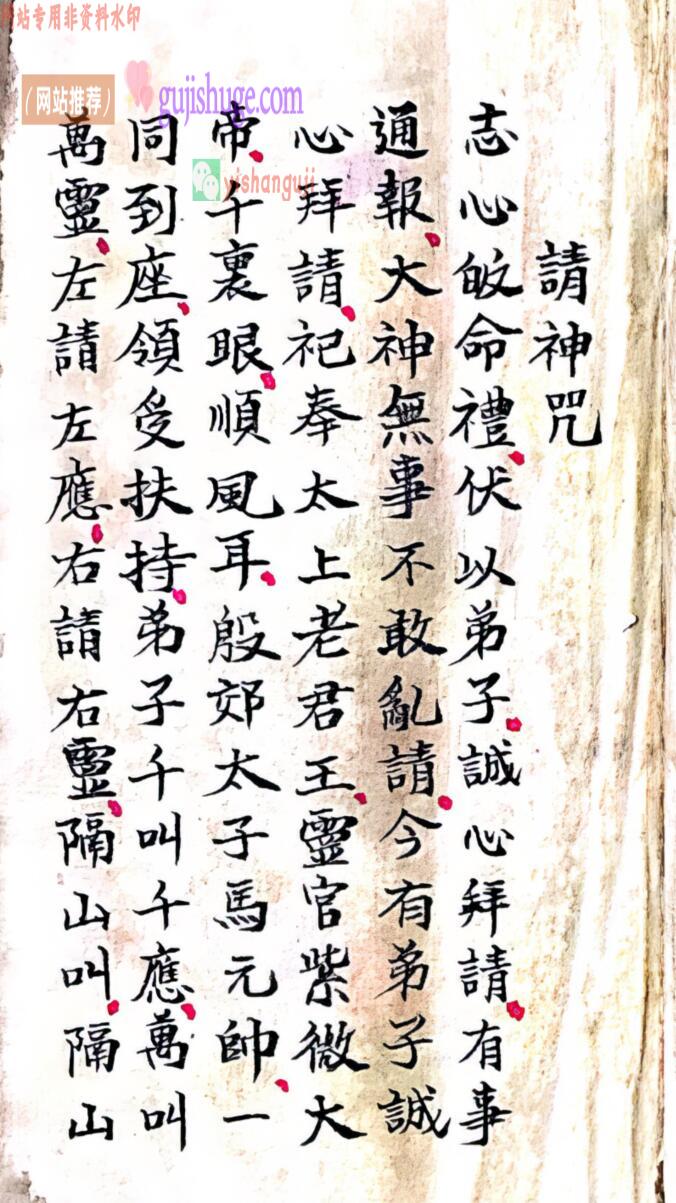 网站专用非资料水印
（网站推荐）
gujishuge.com
yishanguji
請神咒
志心皈命禮伏以弟子誠心拜請有事
通報大神無事不敢亂請今有弟子誠
心拜請祀奉太上老君王靈官紫微大
帝千裏眼順風耳殷郊太子馬元帥一
同到座領受扶持弟子千叫千應萬叫
萬靈左請左應右請右靈隔山叫隔山